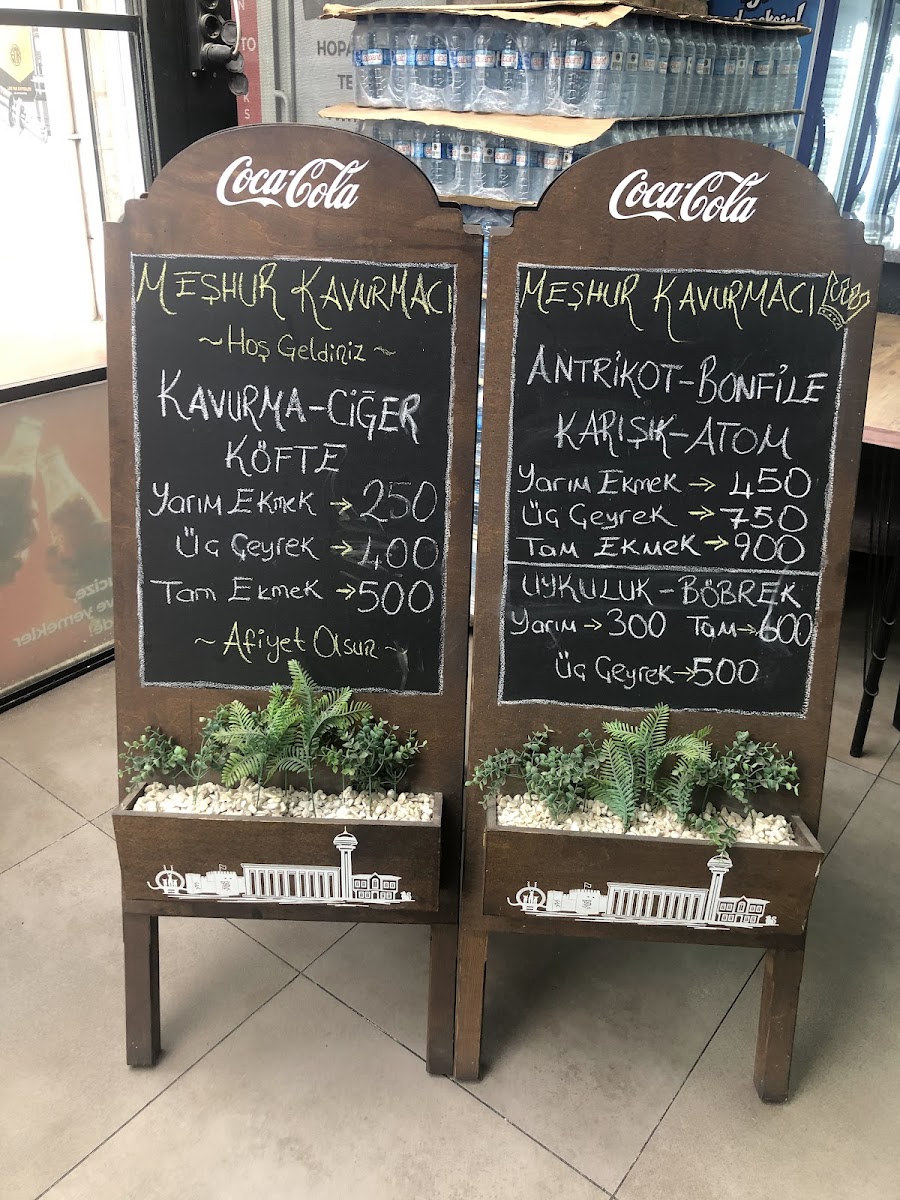 Coca-Cola
MEŞHUR KAVURMACI
~Hoş Geldiniz~
KAVURMA-CİĞER
KÖFTE
Yarım Ekmek → 250
Üç Çeyrek → 400
Tam Ekmek → 500
~Afiyet Olsun~
Coca-Cola
MEŞHUR KAVURMACI
ANTRİKOT-BONFİLE
KARIŞIK-ATOM
Yarım Ekmek → 450
Üç Çeyrek → 750
Tam Ekmek → 900
UYKULUK-BÖBREK
Yarım → 300 Tam → 600
Üç Çeyrek → 500
HOPA
TE
ve yemekler